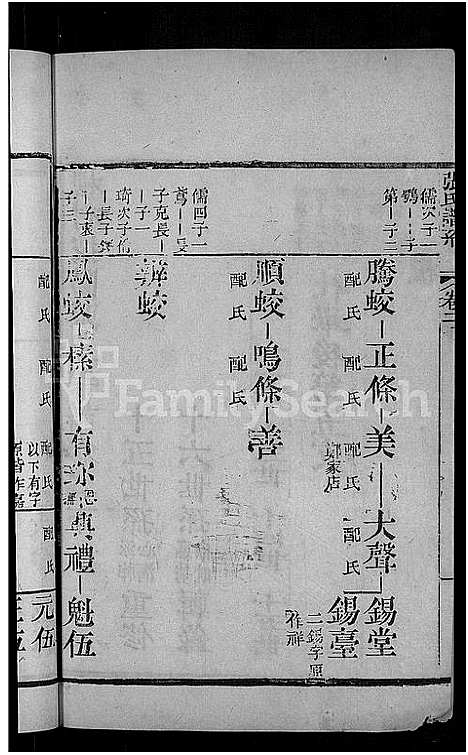 張氏譜系
卷三
儒次子一
第一子三
騰蛟－正條－美－大聲－錫堂
配氏 配氏 配氏 配氏
鄧家店
錫臺
二錫字原
作祥
順蛟－鳴條－善
配氏 配氏
儒四子一
鳶一一長
子克長一
子一
琦次子仁
一長子鐸
一子衷一
子三
辨蛟
鳳蛟－榛－有弥 典禮－魁伍
配氏 配氏 配氏 配氏
以下有字
原皆作嘉
元伍
FamilySearch